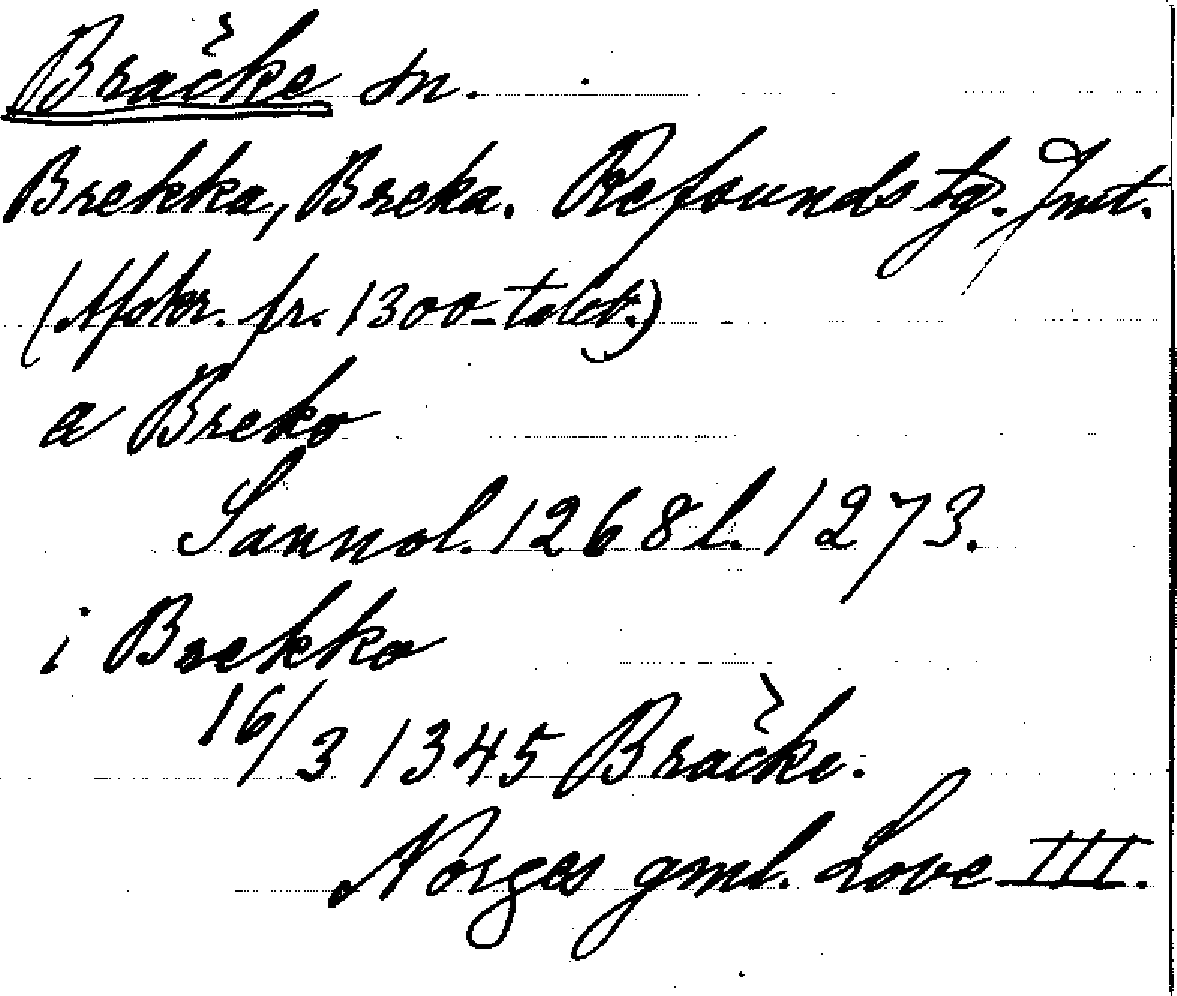 Bräcke sn.
Brekka, Breka. Refsunds tg. Jmt.
(Afskr. fr. 1300-talet.)
a Breko
Sannol. 1268 l. 1273.
i Brekko
16/3 1345 Bräcke.
Norges gml. Love III.